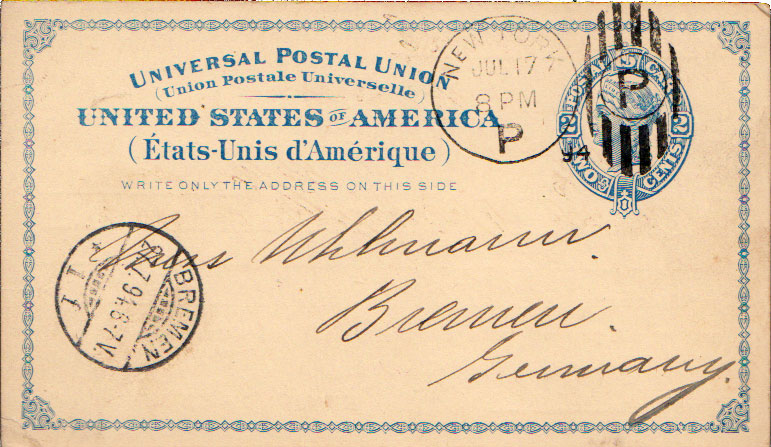 UNIVERSAL POSTAL UNION
(Union Postale Universelle)
UNITED STATES OF AMERICA
(États-Unis d'Amérique)
WRITE ONLY THE ADDRESS ON THIS SIDE
NEW YORK
JUL 17
8 PM
P
94
P
POSTAL CARD
2 2
TWO CENTS
BREMEN
7.94.6-7V.
Uhlmann.
Bremen.
Germany.